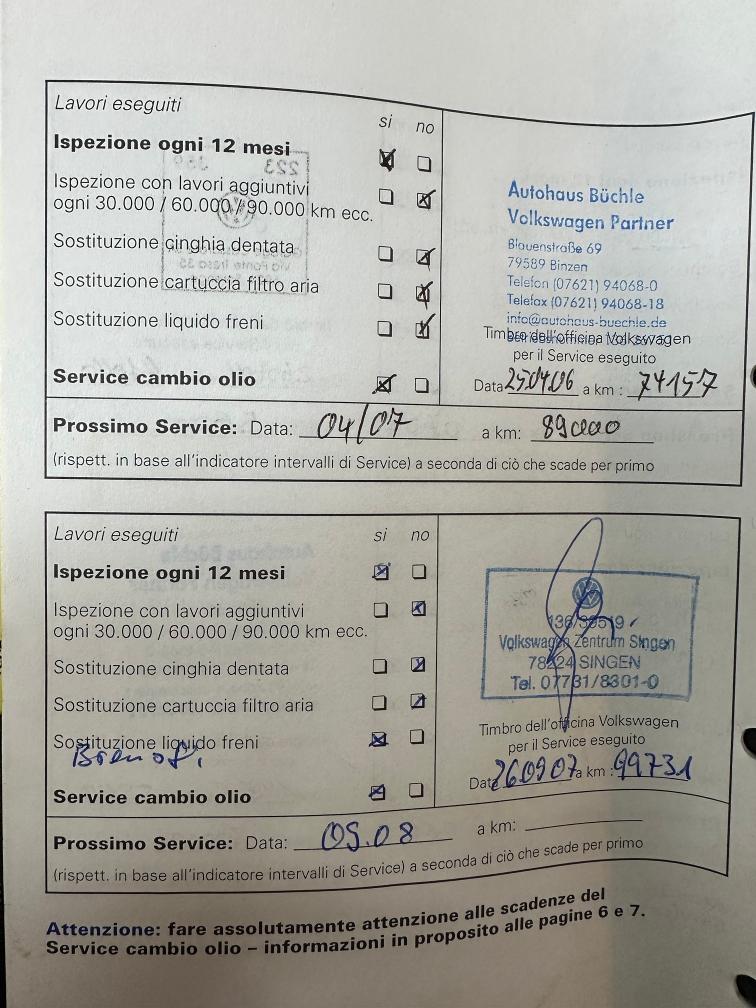 Lavori eseguiti
si no
Ispezione ogni 12 mesi
Ispezione con lavori aggiuntivi
ogni 30.000 / 60.000 / 90.000 km ecc.
Sostituzione cinghia dentata
Sostituzione cartuccia filtro aria
Sostituzione liquido freni
Service cambio olio
Autohaus Büchle
Volkswagen Partner
Blauenstraße 69
79589 Binzen
Telefon (07621) 94068-0
Telefax (07621) 94068-18
info@autohaus-buechle.de
Timbro dell'officina Volkswagen
per il Service eseguito
Data 25.04.06 a km : 74157
Prossimo Service: Data: 04/07 a km: 89000
(rispett. in base all'indicatore intervalli di Service) a seconda di ciò che scade per primo
Lavori eseguiti
si no
Ispezione ogni 12 mesi
Ispezione con lavori aggiuntivi
ogni 30.000 / 60.000 / 90.000 km ecc.
Sostituzione cinghia dentata
Sostituzione cartuccia filtro aria
Sostituzione liquido freni
Service cambio olio
Volkswagen Zentrum Singen
78224 SINGEN
Tel. 07731/8301-0
Timbro dell'officina Volkswagen
per il Service eseguito
Data 260907 a km : 99731
Prossimo Service: Data: 09.08 a km:
(rispett. in base all'indicatore intervalli di Service) a seconda di ciò che scade per primo
Attenzione: fare assolutamente attenzione alle scadenze del
Service cambio olio – informazioni in proposito alle pagine 6 e 7.